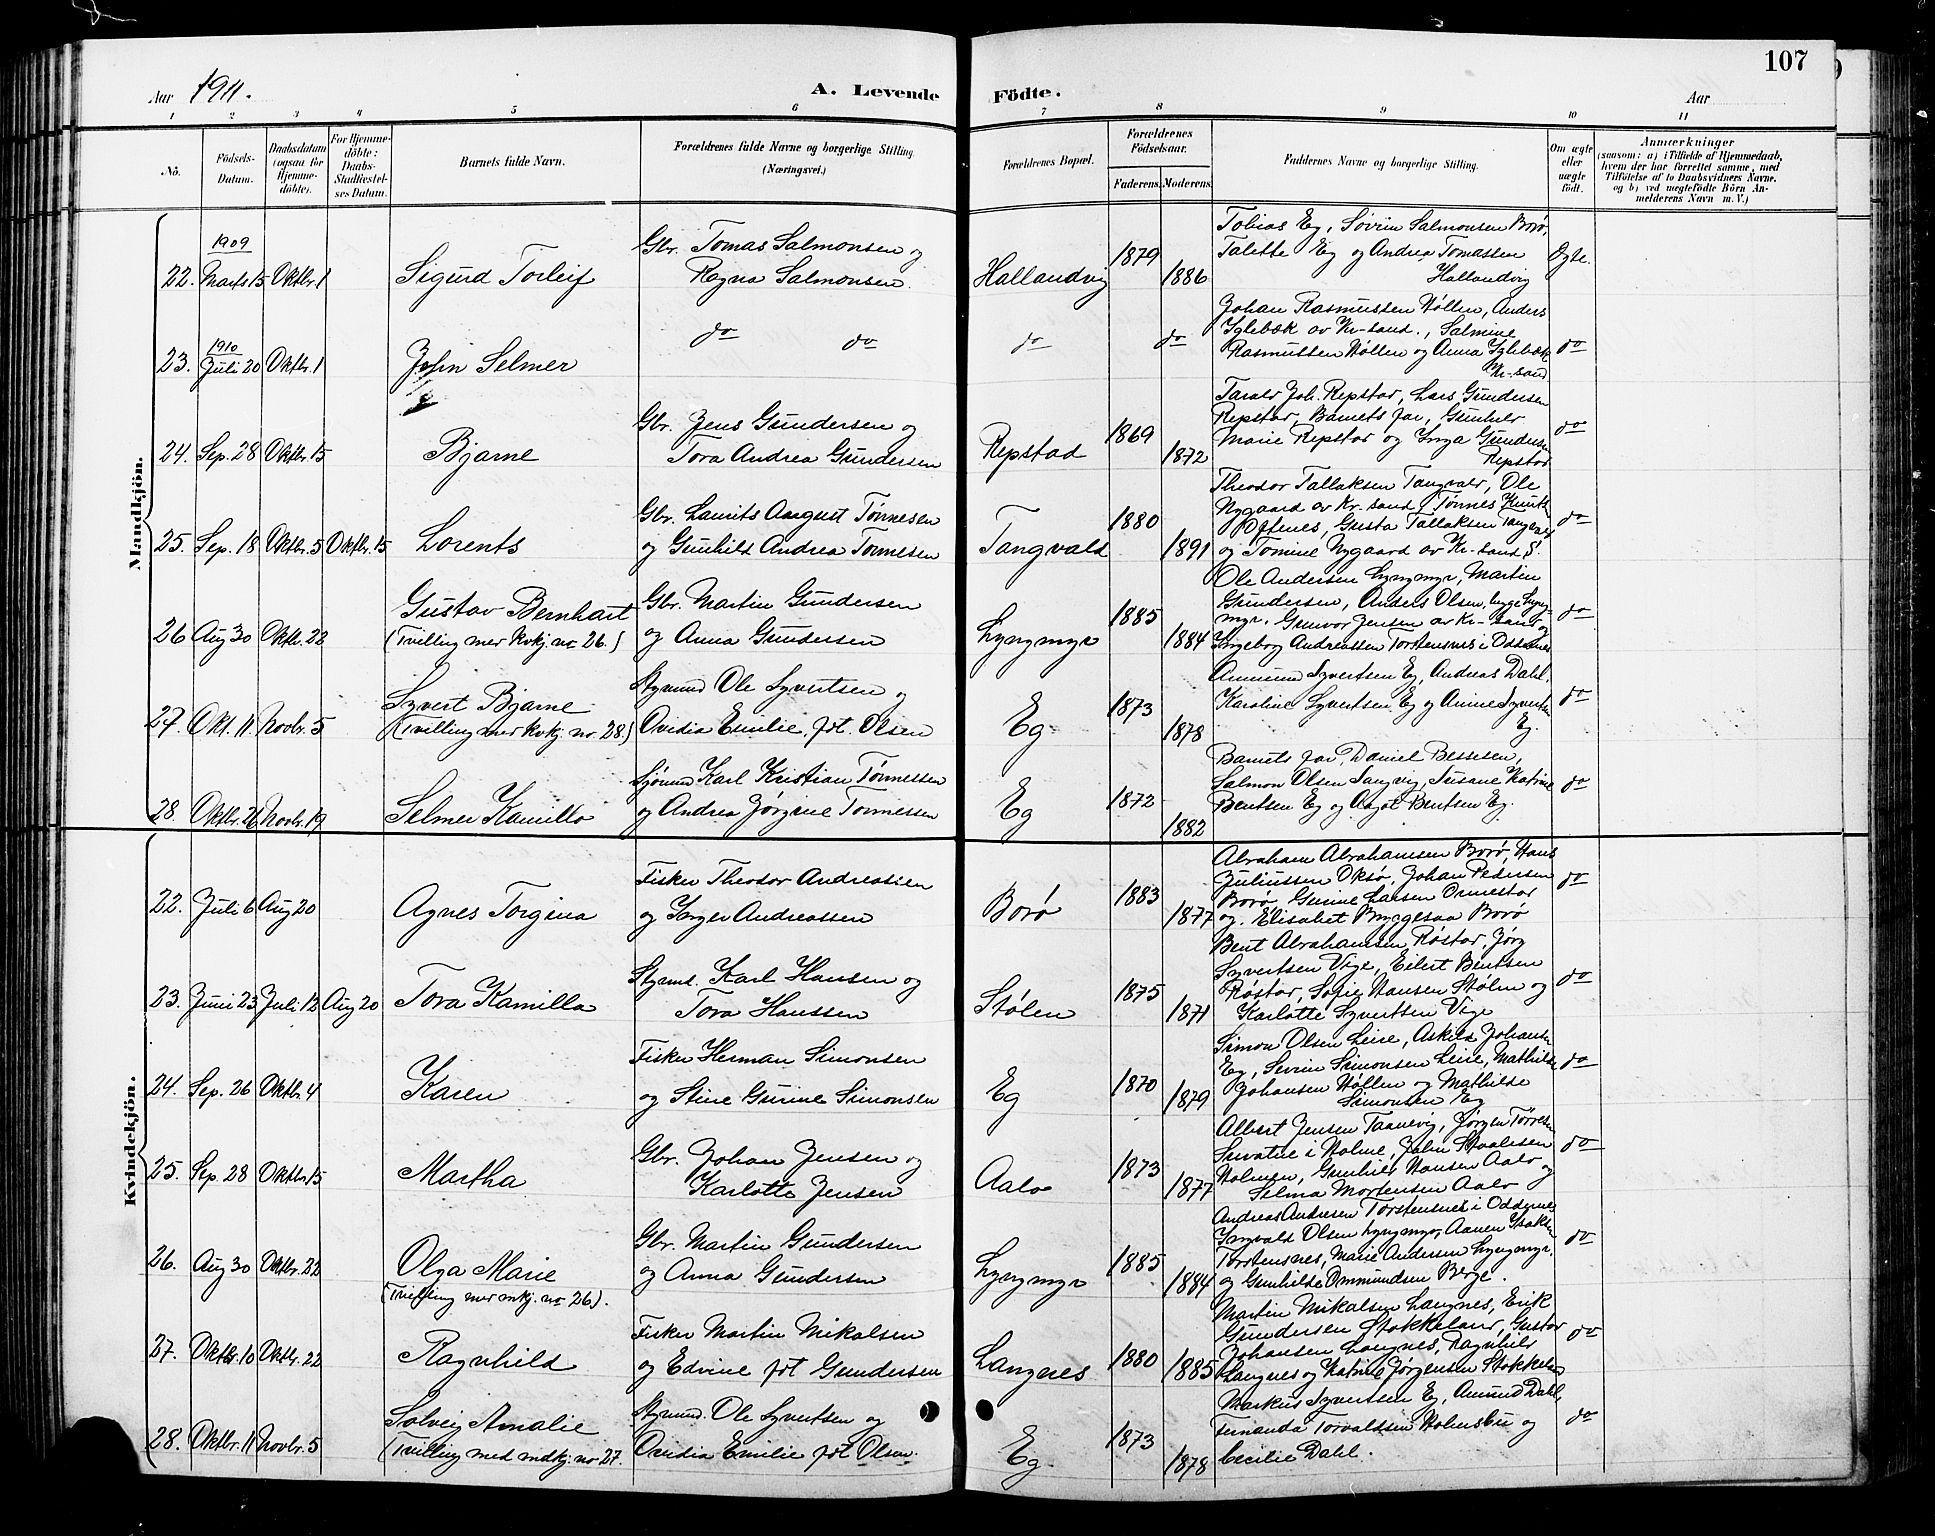 107
Aar 1911.
A. Levende Födte.
Aar
1 2 3 4 5 6 7 8 9 10 11
No.
Födsels-Datum.
Daabsdatum (ogsaa for Hjemme-döbte).
For Hjemme-döbte: Daabs-Stadfæstel-ses Datum.
Barnets fulde Navn.
Forældrenes fulde Navne og borgerlige Stilling. (Næringsvei.)
Forældrenes Bopæl.
Forældrenes Födselsaar.
Faderens.
Moderens.
Faddernes Navne og borgerlige Stilling.
Om ægte eller uægte födt.
Anmærkninger
(saasom: a) i Tilfælde af Hjemmedaab, hvem der har forrettet samme, med Tilföielse af to Daabsvidners Navne. og b) ved uegtefödte Börn An-melderens Navn m.V.)
Mandkjön.
22. 1909 Marts 15 Oktbr. 1 Sigurd Torleif Gbr. Tomas Salmonsen og Ragna Salmonsen. Hallandvig 1879 1886 Tobias Eg, Søvrin Salmonsen Borø, Talette Eg og Andrea Tomassen Hallandvig Egte.
23. 1910 Juli 20 Oktbr. 1 John Selmer do do do do Johan Rasmussen Høllen, Anders Iglebæk av Kr-sand., Salmine Rasmussen Høllen og Anna Iglebæk Kr-sand do
24. Sep. 28 Oktbr. 15 Bjarne Gbr. Jens Gundersen og Tora Andrea Gundersen Repstad 1869 1872 Tarald Joh. Repstad, Lars Gundersen Repstad, Barnets far, Gunhild Marie Repstad og Inga Gundersen Repstad do
25. Sep. 18 Oktbr. 5 Oktbr. 15 Lorents Gbr. Laurits August Tønnesen og Gunhild Andrea Tønnesen Tangvald 1880 1891 Theodor Tallaksen Tangvald, Ole Nygaard av Kr.sand, Tønnes Knuts Øftenes, Gusta Tallaksen Tangvald og Tomine Nygaard av Kr-sand S. do
26 Aug 30 Oktbr. 22 Gustav Bernhart (Tvilling med kvkj. no 26.) Gbr. Martin Gundersen og Anna Gundersen Lyngmyr 1885 1884 Ole Andersen Lyngmyr, Martin Gundersen, Anders Olsen, begge Lyng-myr. Gunvor Jensen av Kr-sand og Ingeborg Andreassen Torstensnes i Oddernes do
27. Okt. 11 Novbr. 5 Syvert Bjarne (Tvilling med kvkj. no 28.) Styrmd Ole Syvertsen og Ovidia Emilie, fdt. Olsen Eg 1873 1878 Anmund Syvertsen Eg, Andreas Dahl. Karoline Syvertsen Eg og Anine Syvertsen Eg. do
28. Oktbr. 26 Novbr. 19 Selmer Kamillo Sjømd Karl Kristian Tønnessen og Andrea Jørgine Tønnessen Eg 1872 1882 Barnets far, Daniel Bessesen, Salmon Olsen Langvig, Susane Katrine Bentsen Eg og Aagot Bentsen Eg. do
Kvindekjön.
22. Juli 6 Aug 20 Agnes Torgina Fisker Theodor Andreassen og Inger Andreassen Borø 1883 1877 Abraham Abrahamsen Borø, Hans Juliussen Oksø, Johan Pedersen Borø, Gurine Larsen Ormestad og Elisabet Bryggesaa Borø do
23. Juni 23 Juli 12 Aug 20 Tora Kamilla Styrmd. Karl Hansen og Tora Hanssen Stølen 1875 1871 Bent Abrahamsen Røstad, Jørg Syvertsen Vige, Eilert Bentsen Røstad, Sofie Hansen Stølen og Karlotte Syvertsen Vige do
24. Sep. 26 Oktbr. 4 Karen Fisker Herman Simonsen og Stine Gurine Simonsen Eg 1870 1879 Simon Olsen Leire, Askild Johansen Eg, Sevrin Simonsen Leire, Mathilde Johansen Høllen og Mathilde Simonsen Eg do
25. Sep. 28 Oktbr. 15 Martha Gbr. Johan Jensen og Karlotte Jensen Aalo 1873 1877 Albert Jensen Taanevig, Jørgen Tørresen i Holme, John Staalesen Holmen, Gunhild Hansen Aalo og Selma Mortensen Aalo do
26. Aug 30 Oktbr. 22 Olga Marie (Tvilling med mkj. no 26). Gbr. Martin Gundersen og Anna Gundersen Lyngmyr 1885 1884 Andreas Andresen Torstensnes i Oddernes Ingvald Olsen Lyngmyr, Aanen Isaksen Torstensnes, Marie Andersen Lyngmyr, og Gunhilde Ommundsen Berge. do
27. Oktbr. 10 Oktbr. 22 Ragnhild Fisker Martin Mikalsen og Edvine fdt Gundersen Langnes 1880 1885 Martin Mikalsen Langnes, Erik Gundersen Stokkeland, Gustav Johansen Langnes, Ragnhild Langnes og Katrine Jørgensen Stokkeland do
28. Oktbr. 11 Novbr. 5 Solveig Amalie (Tvilling med mdkj. no 27. Styrmd. Ole Syvertsen og Ovidia Emilie fdt Olsen. Eg. 1873 1878 Markus Syvertsen Eg, Anund Dahl, Fernanda Torvaldsen Holmsbu og Cecilie Dahl. do